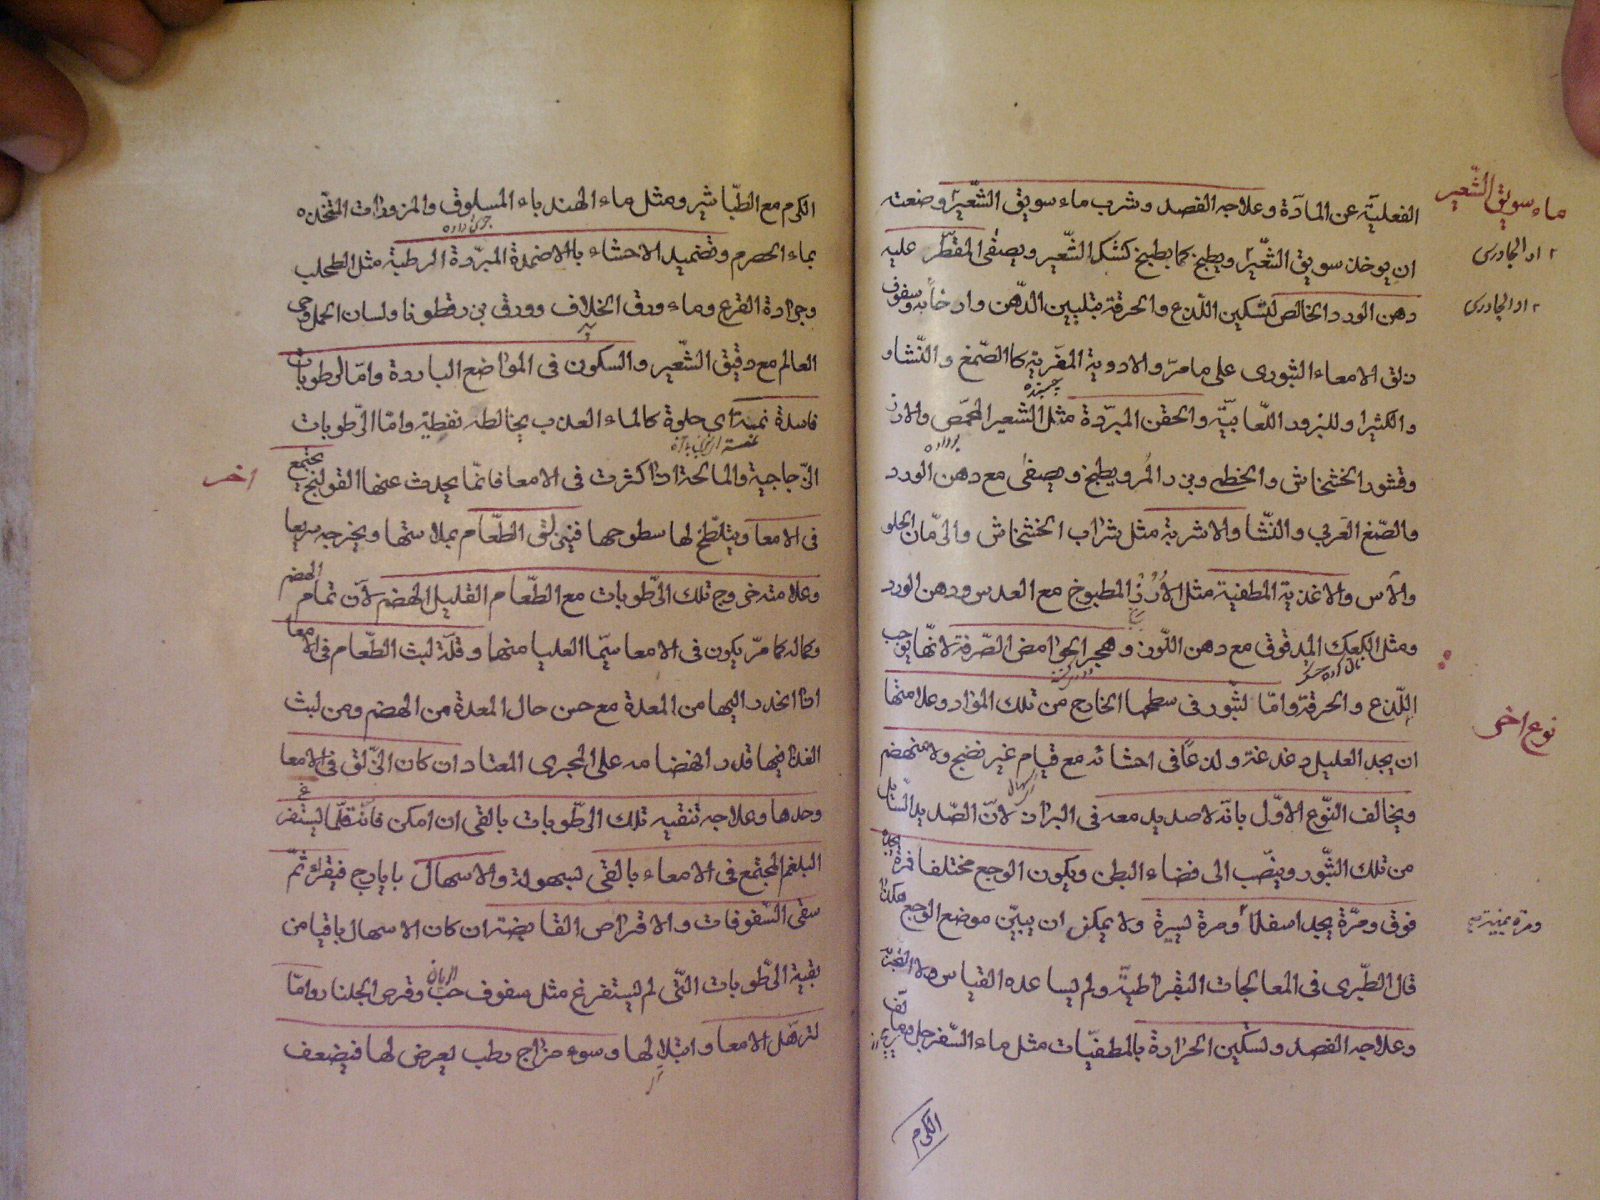 ماء سويق الشعير
الفعليّة عن المادّة وعلاجه الفصد وشرب ماء سويق الشّعير وضعته
ان يوخذ سويق الشّعير ويطبخ كما يطبخ كشك الشّعير ويصفى المقطّر عليه
دهن الورد الخالص لتسكين اللّذع والحرقة بتليين الدّهن وارخائه وسفوف
زلق الامعاء البثورى على ما مرّ والادوية المغرّية كالصّمغ والنّشاء
والكثيرا وللبزور اللّعابيّة والحقن المبرّدة مثل الشعير المحمّص والارز
وقشور الخشخاش والخطمى وبزر المرو يطبخ ويصفى مع دهن الورد
والصّمغ العربي والنّشا والاشربة مثل شراب الخشخاش والرّمان الحلو
والآس والاغذية المطفية مثل الارز المطبوخ مع العدس ودهن الورد
ومثل الكعك المدقوق مع دهن اللّوز وهجر الحوامض الصّرفة لانّها يوجب
اللّذع والحرقة وامّا لبثور فى سطحها الخارج من تلك الموّاد وعلامتها
نوع اخر
ان يجد العليل دغدغة ولذعاً فى احشائه مع قيام غير نضج ولا منهضم
ويخالف النّوع الاوّل بانّه لا صديد معه فى البراز لانّ الصّديد السّايل
من تلك الثّبور وينصّب الى فضاء البطن ويكون الوجع مختلفا فمرّة يجد
فوق ومرّة يجد اسفلاً ومرة يسرة ولا يمكن ان يبيّن موضع الوجع هكذا
قال الطّبرى فى المعالجات البقراطيّة ولم يساعده القياس ولا التجربة
وعلاجه الفصد وتسكين الحرارة بالمطفيّات مثل ماء السّفرجل وماء
الكرم
الكرم مع الطّباشير ومثل ماء الهندباء المسلوق والمزورات المتّخذه
بماء الحصرم وتضميد الاحشاء بالاضمدة المبرّدة الرطبة مثل الطحلب
وجرادة القرع وماء ورق الخلاف وورق بزر قطونا ولسان الحمل وحى
العالم مع دقيق الشّعير والسكون فى المواضع الباردة وامّا لرطوبات
فاسدة نمسة اى حلوة كالماء العذب يخالطه نفطيّة وامّا الرّطوبات
الزّجاجية والمالحة اذا كثرت فى الامعا فانّما يحدث عنها القولنج يجتمع
اخر
فى الامعا ويتلطّخ لها سطوحها فيزلق الطّعام بملاستها ويخرجه سريعا
وعلامته خروج تلك الرّطوبات مع الطّعام القليل الهضم لانّ تمام الهضم
وكماله كما مرّ يكون فى الامعا سيّما العليا منها وقلّة لبث الطّعام فى الامعا
اذا انحدر اليها من المعدة مع حسن حال المعدة من الهضم ومن لبث
الغذا فيها قدر انهضامه على المجرى المعتاد ان كان الزّلق فى الامعا
وحدها وعلاجه تنقيه تلك الرّطوبات بالقى ان امكن فانّه قلّما يستفرغ
البلغم المجتمع فى الامعاء بالقى بسهولة والاسهال بايارج فيقرا ثمّ
سقى السّفوفات والاقراص القابضة ان كان الاسهال باقيا من
بقية الرّطوبات الّتى لم يستفرغ مثل سفوف حبّ الرمان وقرص الجلنار وامّا
لترهّل الامعا وابتلالها وسوء مزاج رطب يعرض لها فيضعف